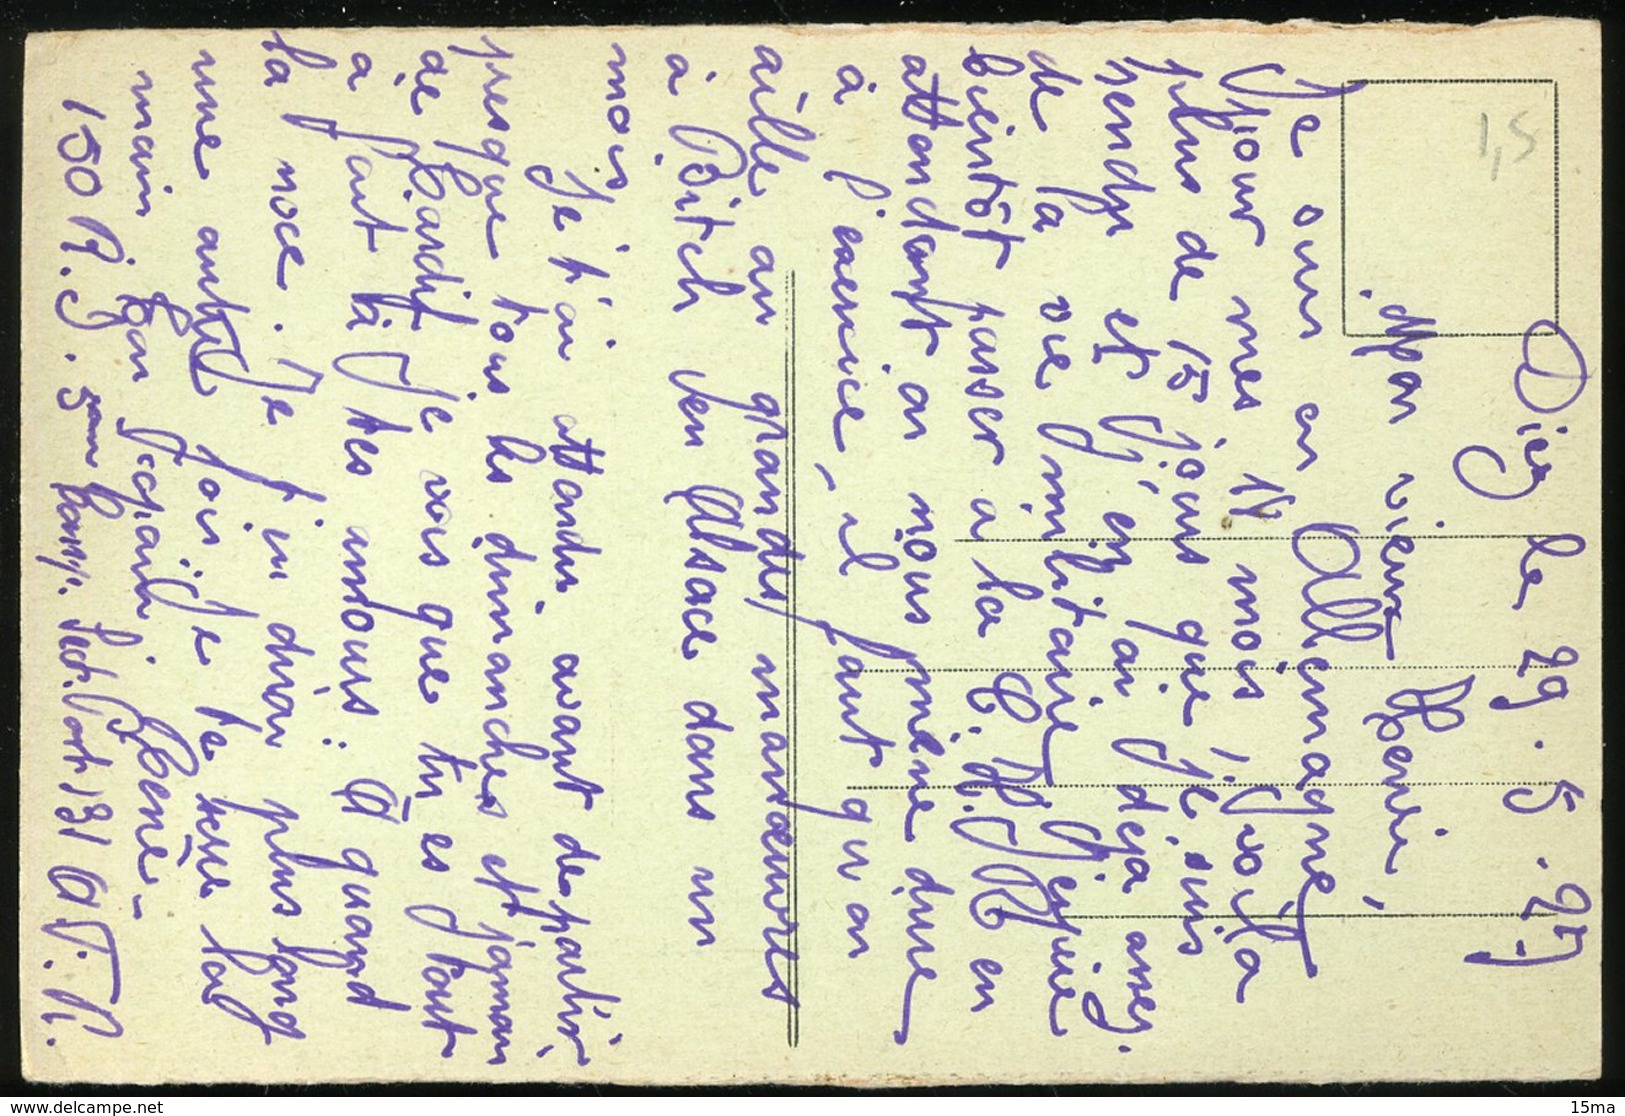 Diez le 29.5.27
Mon vieux Henri,
Je suis en Allemagne
pour mes 18 mois, voila
plus de 15 jours que je suis
rendu et j'en ai deja assez
de la vie militaire
bientôt passer a la C.H.R en
attendant on nous mène dure
à l'exercice, il faut qu'on
aille au grandes manœuvres
à Bitch en Alsace dans un
mois
Je t'ai attendu avant de partir
presque tous les dimanches et jamais
de Gardit Je vois que tu es tout
à fait à tes amours. A quand
la noce. Je t'en dirai plus long
une autre fois. Je te serre la
main Ton copain Réné-
150 R.I. 5eme Comp. Sect. Post. 131 A.F.R.
1,5
www.delcampe.net
15ma